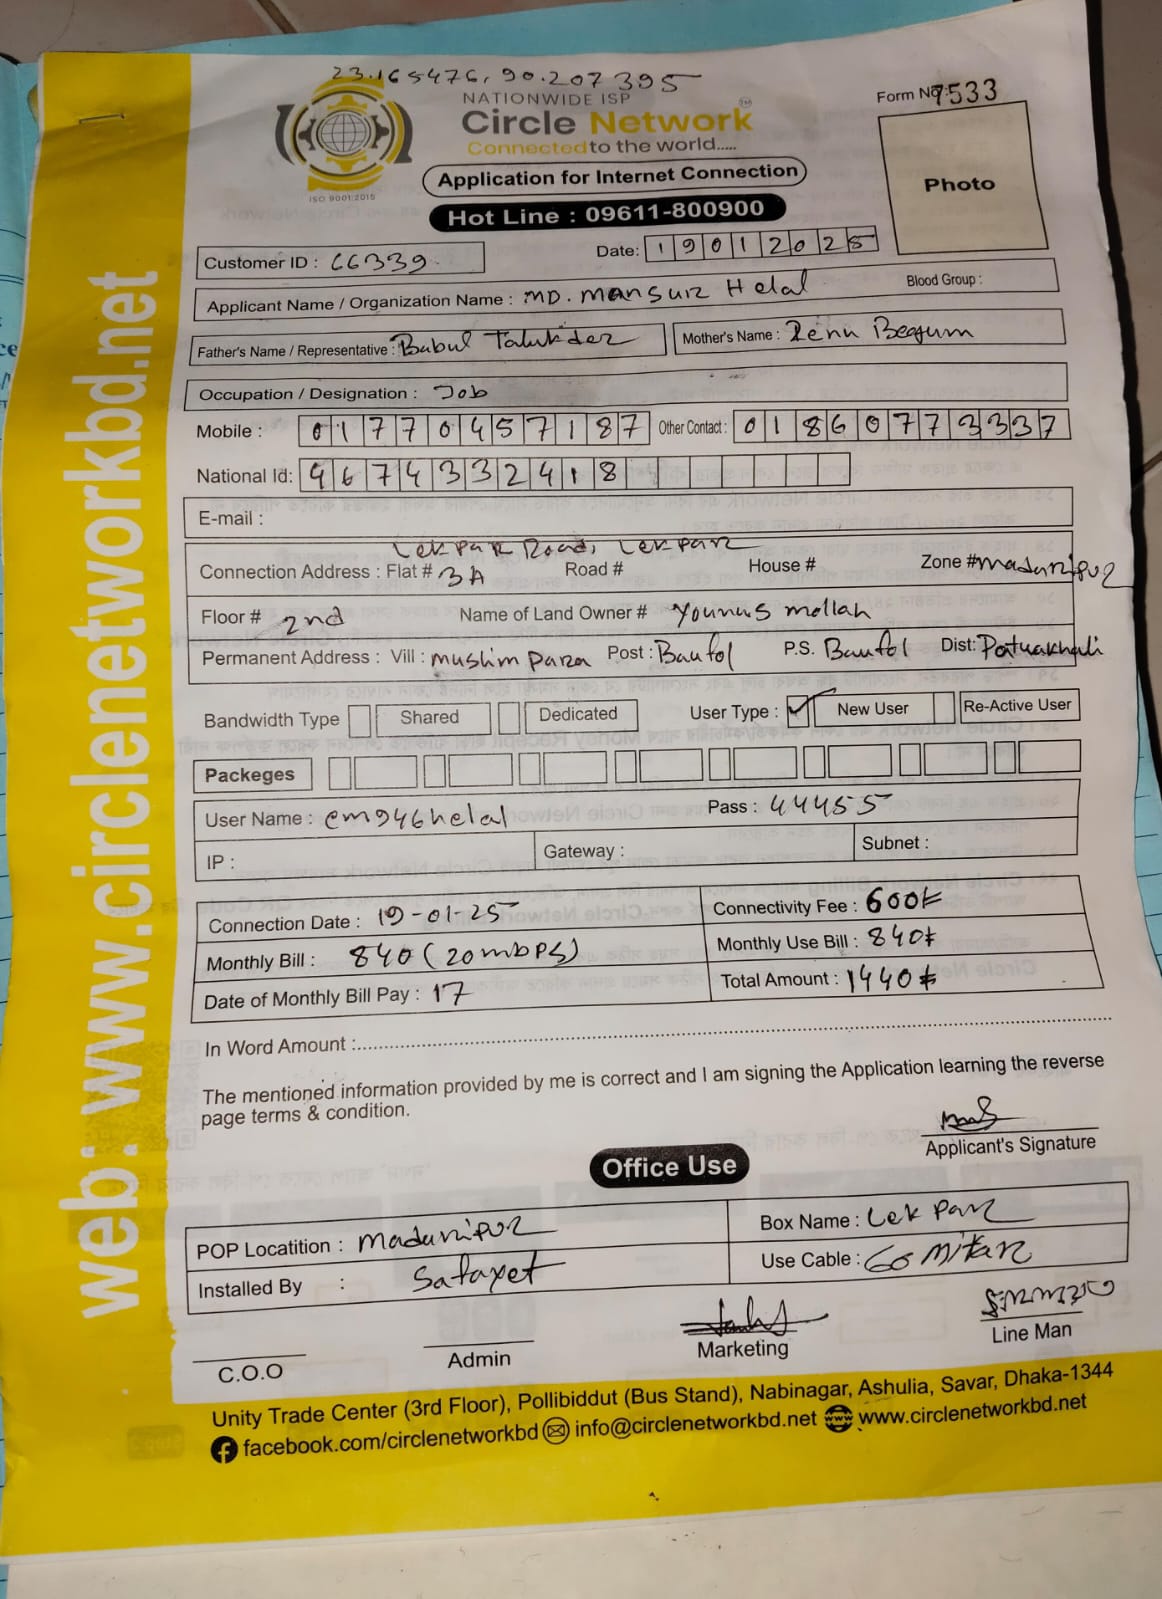 23.165476, 90.207395
NATIONWIDE ISP
Form No: 7533
Circle Network™
Connected to the world.....
ISO 9001:2015
Application for Internet Connection
Photo
Hot Line : 09611-800900
Customer ID : 66339
Date: 19012025
Applicant Name / Organization Name : MD. Mansur Helal
Blood Group :
Father's Name / Representative : Babul Talukder
Mother's Name : Renu Begum
Occupation / Designation : Job
Mobile : 01770457187
Other Contact : 01860773337
National Id: 9674332418
E-mail :
Lek par Road, Lek par
Connection Address : Flat # 3A Road # House # Zone # Madaripur
Floor # 2nd Name of Land Owner # Younus mollah
Permanent Address : Vill : muslim para Post : Baufol P.S. Baufol Dist: Patuakhali
Bandwidth Type Shared Dedicated User Type : New User Re-Active User
Packeges
User Name : cm946helal Pass : 44455
IP : Gateway : Subnet :
Connection Date : 19-01-25 Connectivity Fee : 600৳
Monthly Bill : 840 (20mbps) Monthly Use Bill : 840৳
Date of Monthly Bill Pay : 17 Total Amount : 1440৳
In Word Amount :
The mentioned information provided by me is correct and I am signing the Application learning the reverse
page terms & condition.
Applicant's Signature
Office Use
POP Locatition : Madaripur Box Name : Lek par
Installed By : Safayet Use Cable : 60 Mitar
C.O.O Admin Marketing Line Man
Unity Trade Center (3rd Floor), Pollibiddut (Bus Stand), Nabinagar, Ashulia, Savar, Dhaka-1344
facebook.com/circlenetworkbd info@circlenetworkbd.net www.circlenetworkbd.net
web: www.circlenetworkbd.net